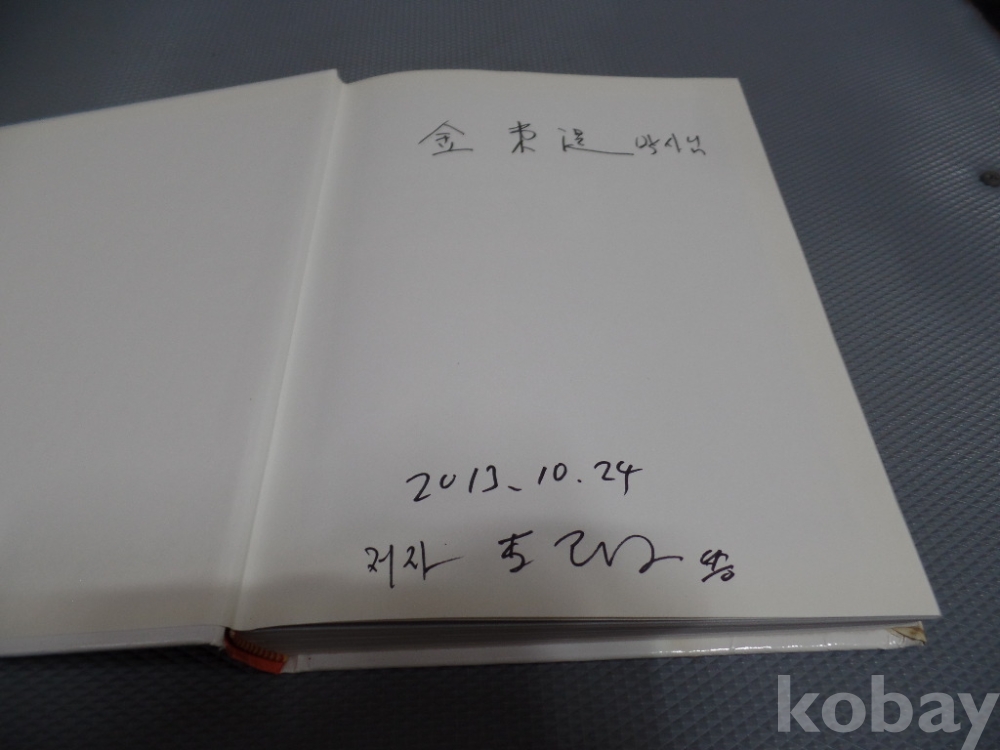 金 東 박사님
2013. 10. 24
저자 드림
kobay